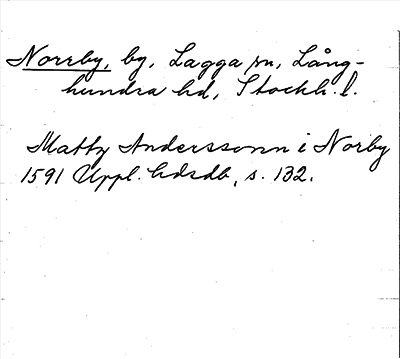 Norrby, by, Lagga sn, Lång-
hundra hd, Stockh. l.
Matts Anderssonn i Norby
1591 Uppl. hdsdb, s. 132.